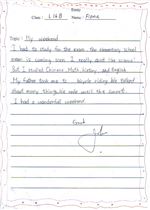 Essay
Class: L16B Name: Fiona
Topic: My weekend
I had to study for the exam. The elementary school
exam is coming soon. I really don't like science
But I studied Chinese, Math, History, and English.
My father took me to bicycle riding. We talked
about many things.
I had a wonderful weekend
Good